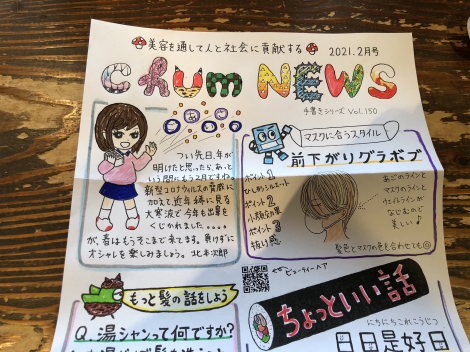 美容を通して人と社会に貢献する
2021.2月号
chum NEWS
手書きシリーズ Vol.150
つい先日、年が
明けたと思ったら、あっと
いう間にもう2月ですね。
新型コロナウイルスの脅威に
加えて近年稀に見る
大寒波で今年も出鼻を
くじかれました。。。。
が、春はもうそこまで来てます。負けずに
オシャレを楽しみましょう。北本次郎
マスクに合うスタイル
前下がりグラボブ
ポイント1
ひし形シルエット
ポイント2
小顔効果
ポイント3
抜け感
あごのラインと
マスクのラインと
ウェイトラインが
なじむので
美しい♪
髪色とマスクの色も合わせても◎
ビューティーヘア
もっと髪の話をしよう
Q.湯シャンって何ですか?
ちょっといい話
にちにちこれこうじつ
日日是好日